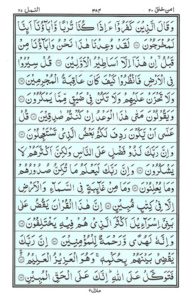 امن خلق ٢٠ ٣٨٣ النمل ٢٧
وَقَالَ الَّذِينَ كَفَرُوا ءَإِذَا كُنَّا تُرَابًا وَآبَاؤُنَا أَئِنَّا
لَمُخْرَجُونَ لَقَدْ وُعِدْنَا هَٰذَا نَحْنُ وَآبَاؤُنَا مِن
قَبْلُ إِنْ هَٰذَا إِلَّا أَسَاطِيرُ الْأَوَّلِينَ قُلْ سِيرُوا
فِي الْأَرْضِ فَانظُرُوا كَيْفَ كَانَ عَاقِبَةُ الْمُجْرِمِينَ
وَلَا تَحْزَنْ عَلَيْهِمْ وَلَا تَكُن فِي ضَيْقٍ مِّمَّا يَمْكُرُونَ
وَيَقُولُونَ مَتَىٰ هَٰذَا الْوَعْدُ إِن كُنتُمْ صَادِقِينَ قُلْ
عَسَىٰ أَن يَكُونَ رَدِفَ لَكُم بَعْضُ الَّذِي تَسْتَعْجِلُونَ
وَإِنَّ رَبَّكَ لَذُو فَضْلٍ عَلَى النَّاسِ وَلَٰكِنَّ أَكْثَرَهُمْ لَا
يَشْكُرُونَ وَإِنَّ رَبَّكَ لَيَعْلَمُ مَا تُكِنُّ صُدُورُهُمْ
وَمَا يُعْلِنُونَ وَمَا مِنْ غَائِبَةٍ فِي السَّمَاءِ وَالْأَرْضِ
إِلَّا فِي كِتَابٍ مُّبِينٍ إِنَّ هَٰذَا الْقُرْآنَ يَقُصُّ عَلَىٰ
بَنِي إِسْرَائِيلَ أَكْثَرَ الَّذِي هُمْ فِيهِ يَخْتَلِفُونَ
وَإِنَّهُ لَهُدًى وَرَحْمَةٌ لِّلْمُؤْمِنِينَ إِنَّ رَبَّكَ
يَقْضِي بَيْنَهُم بِحُكْمِهِ وَهُوَ الْعَزِيزُ الْعَلِيمُ
فَتَوَكَّلْ عَلَى اللَّهِ إِنَّكَ عَلَى الْحَقِّ الْمُبِينِ